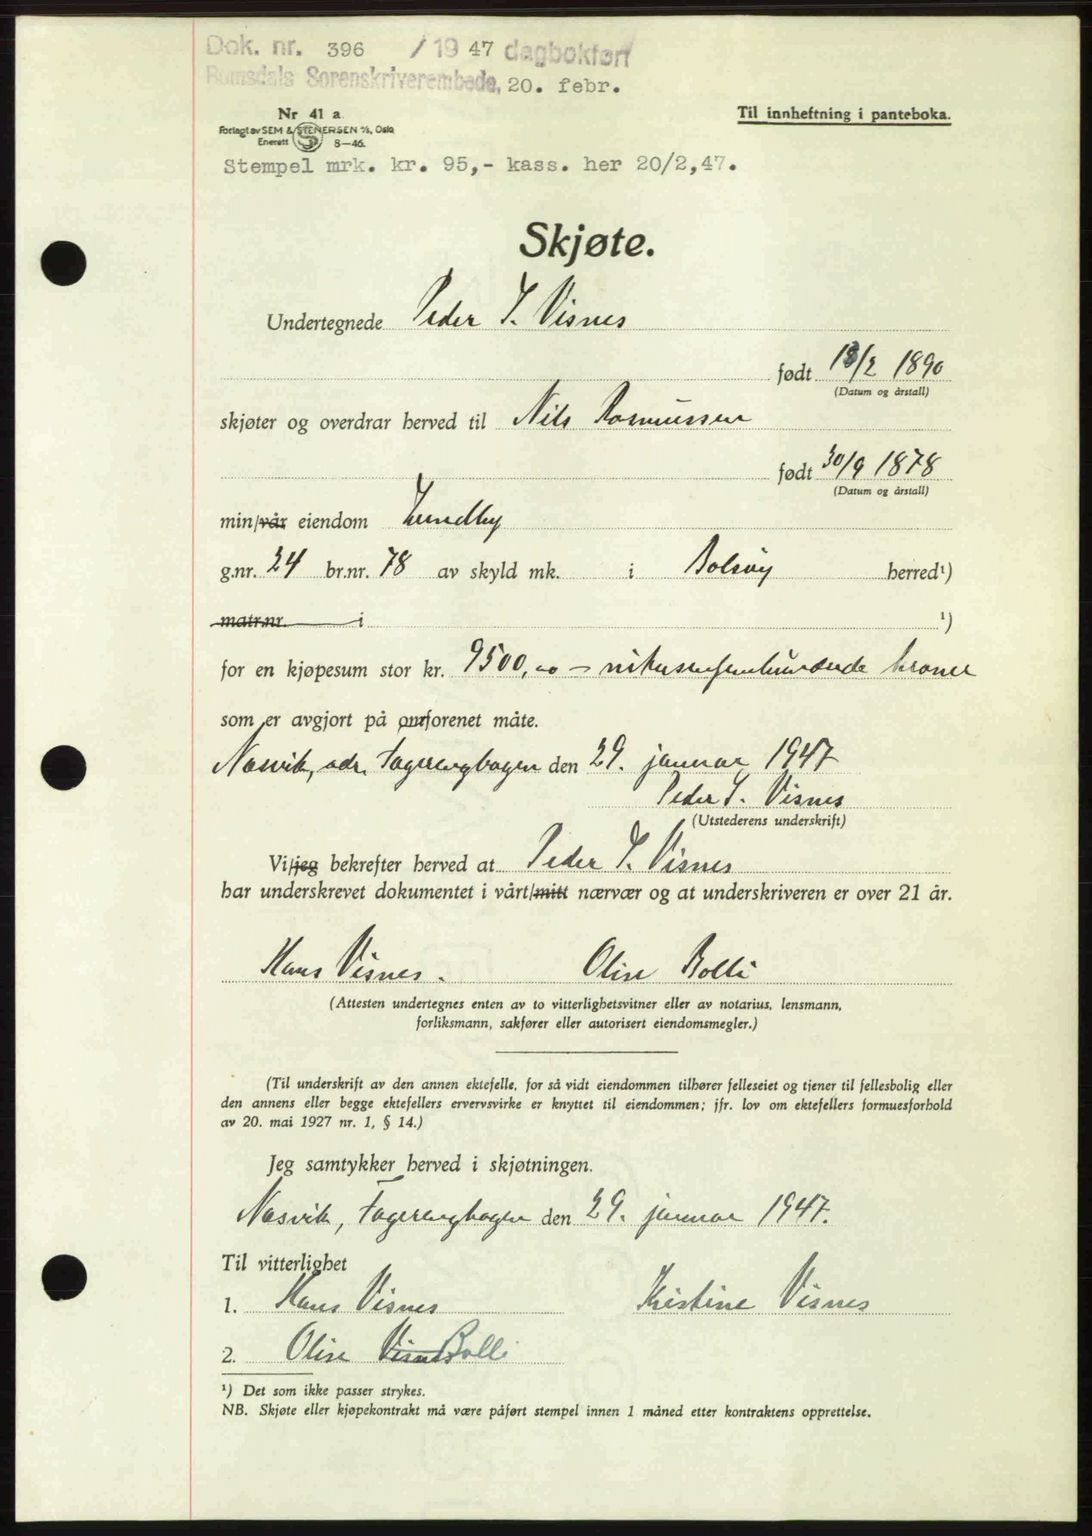 Dok. nr. 396 / 19 47 dagbokført
Romsdals Sorenskriverembede, 20. febr.
Nr 41 a
Til innheftning i panteboka.
Forlagt av SEM & STENERSEN A/S, Oslo
Enerett 8—46.
Stempel mrk. kr. 95,- kass. her 20/2,47.
Skjøte.
Undertegnede Peder I. Visnes
født 18/2 1890
(Datum og årstall)
skjøter og overdrar herved til Nils Rasmussen
født 30/9 1878
(Datum og årstall)
min/vår eiendom Lundby
g.nr. 24 br.nr. 78 av skyld mk. i Bolsøy herred¹)
matr.nr. i ¹)
for en kjøpesum stor kr. 9500,00 – nitusenfemhundrede kroner
som er avgjort på omforenet måte.
Nosvik, adr. Fagerengbogen den 29. januar 1947
Peder I. Visnes
(Utstederens underskrift)
Vi/jeg bekrefter herved at Peder I. Visnes
har underskrevet dokumentet i vårt/mitt nærvær og at underskriveren er over 21 år.
Hans Visnes. Oline Bolli
(Attesten undertegnes enten av to vitterlighetsvitner eller av notarius, lensmann,
forliksmann, sakfører eller autorisert eiendomsmegler.)
(Til underskrift av den annen ektefelle, for så vidt eiendommen tilhører felleseiet og tjener til fellesbolig eller
den annens eller begge ektefellers ervervsvirke er knyttet til eiendommen; jfr. lov om ektefellers formuesforhold
av 20. mai 1927 nr. 1, § 14.)
Jeg samtykker herved i skjøtningen.
Nosvik, Fagerengbogen den 29. januar 1947.
Til vitterlighet
1. Hans Visnes Kristine Visnes
2. Oline Visnes Bolli
¹) Det som ikke passer strykes.
NB. Skjøte eller kjøpekontrakt må være påført stempel innen 1 måned etter kontraktens opprettelse.